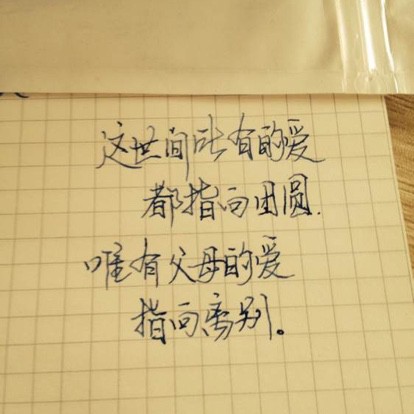 这世间所有的爱
都指向团圆.
唯有父母的爱
指向离别。